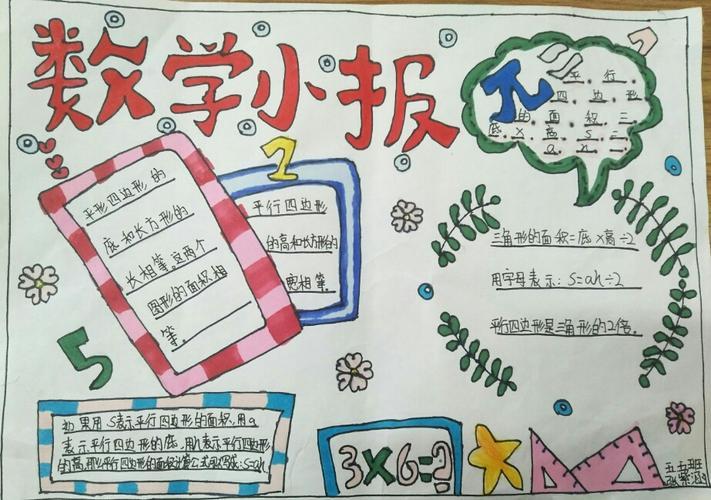 数学小报
π
平行
四边形
的面积=
底×高s=
ah
2
平形四边形的
底和长方形的
长相等，这两个
图形的面积相
等。
平行四边形
的高和长方形的
宽相等。
三角形的面积=底×高÷2
用字母表示：S=ah÷2
平行四边形是三角形的2倍。
5
如果用S表示平行四边形的面积，用a
表示平行四边形的底，用h表示平行四边形
的高，那么平行四边形的面积计算公式可以写成：S=ah
3×6=?
五五班